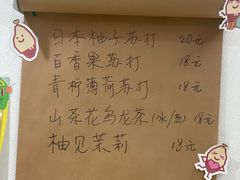 日本柚子苏打 20元
百香果苏打 18元
青柠薄荷苏打 18元
山茶花乌龙茶(冰/热) 18元
柚见茉莉 18元